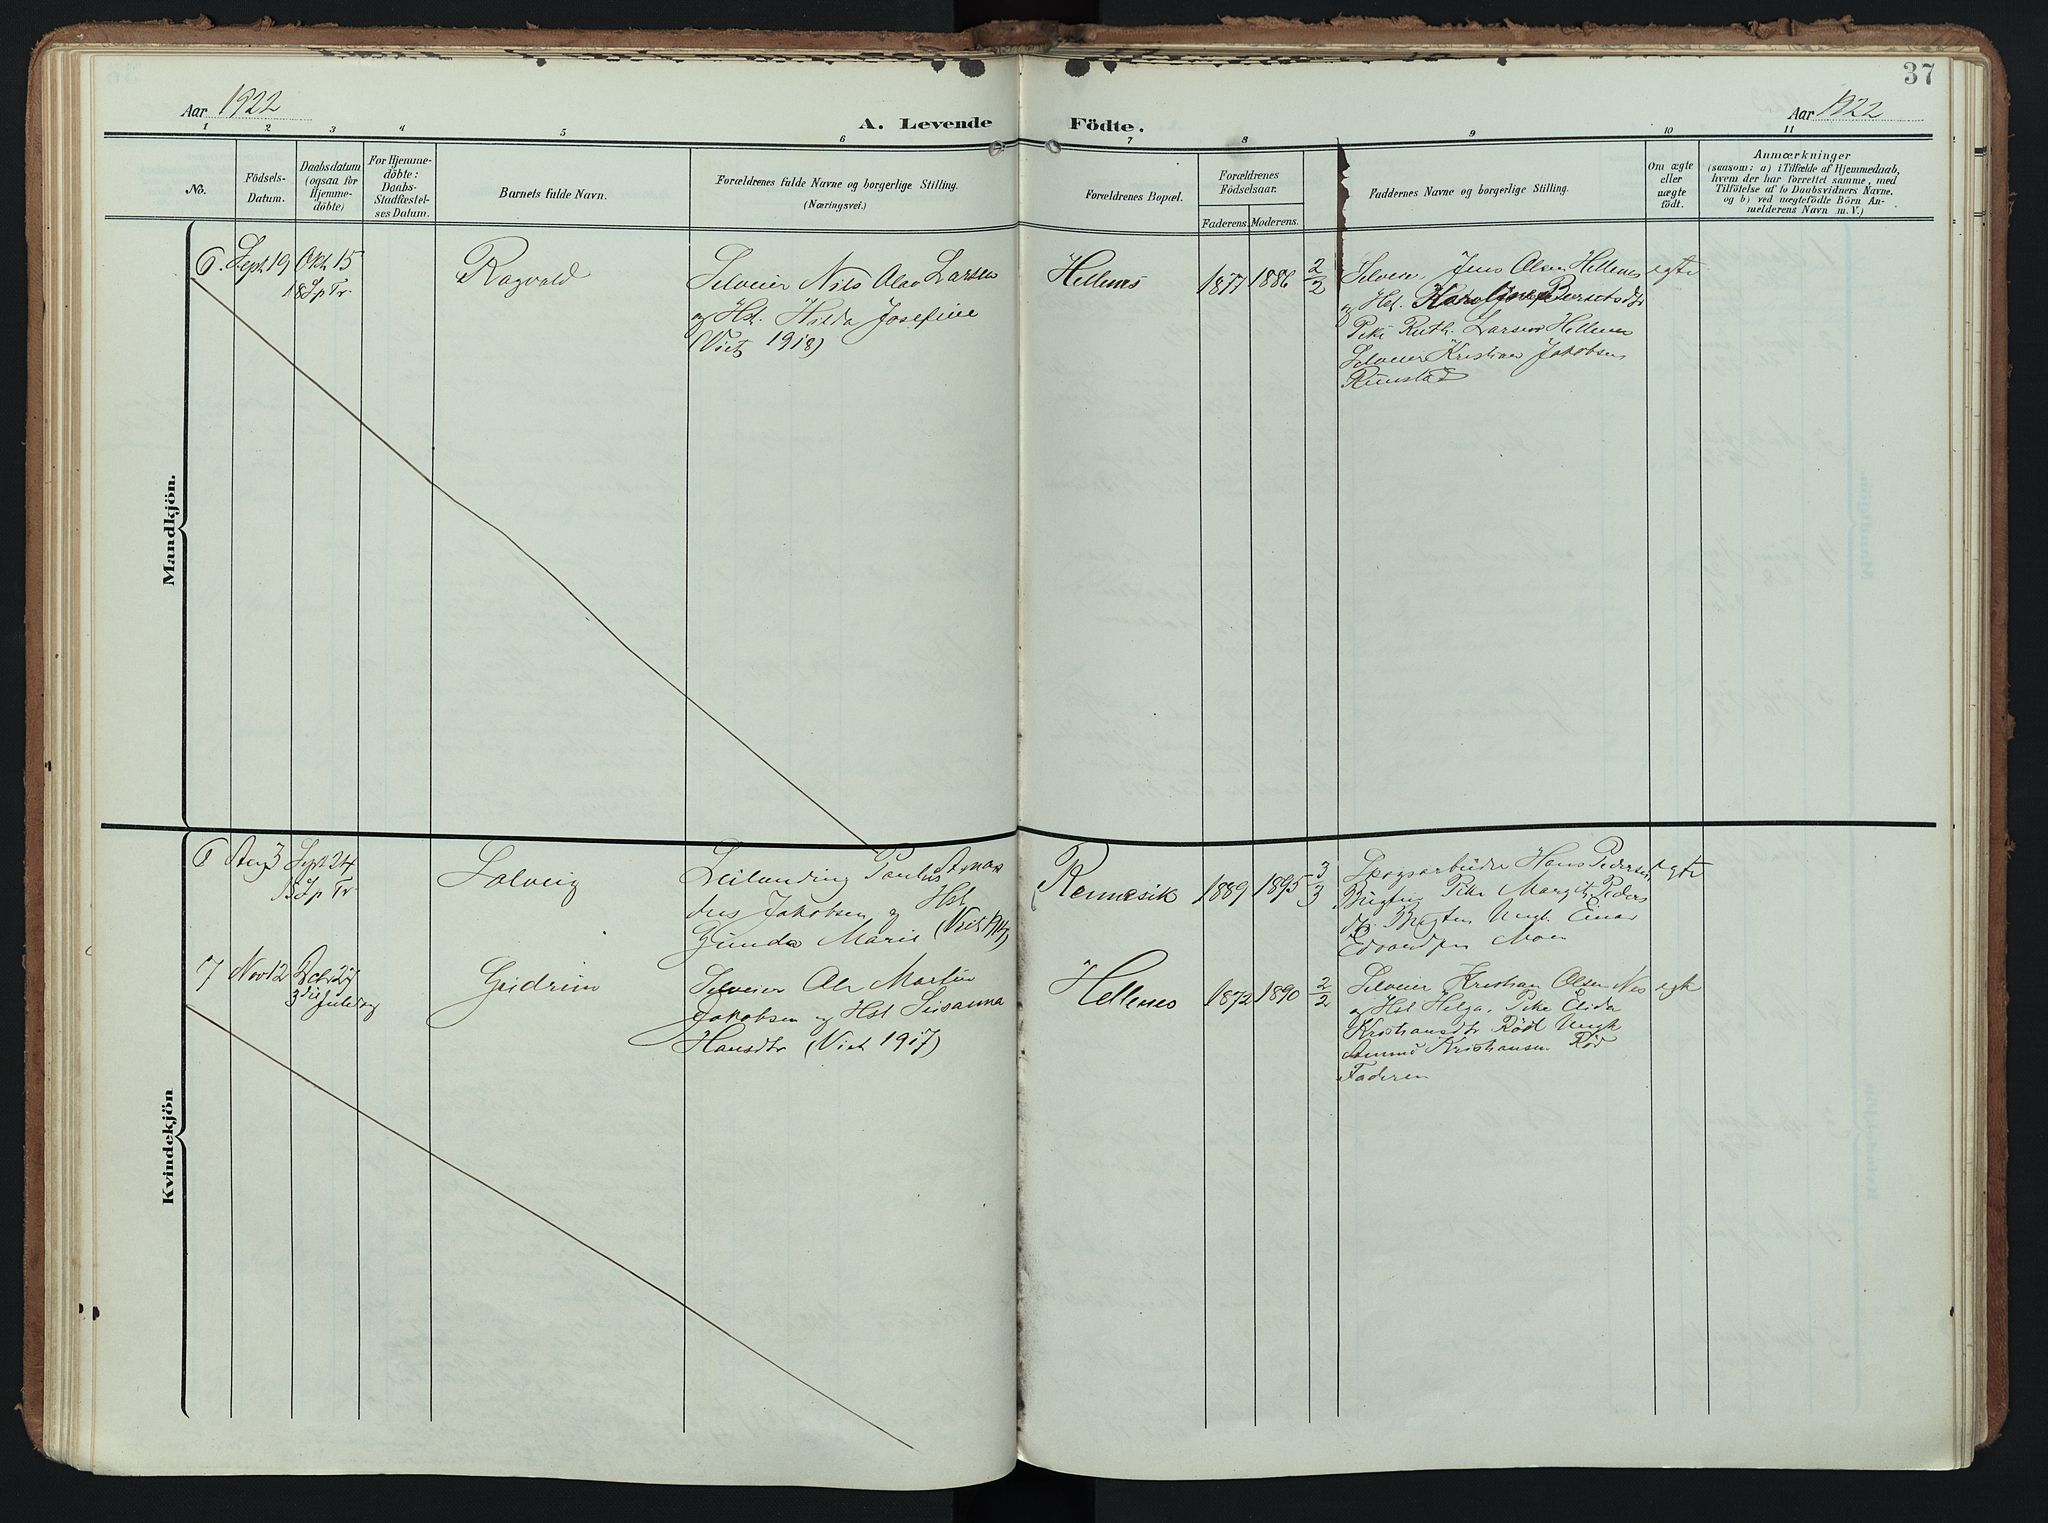 37
Aar 1922
A. Levende Födte.
Aar 1922
1 2 3 4 5 6 7 8 9 10 11
No.
Födsels-
Datum.
Daabsdatum
(ogsaa for
Hjemme-
döbte)
For Hjemme-
döbte:
Daabs-
Stadfæstel-
ses Datum.
Barnets fulde Navn.
Forældrenes fulde Navne og borgerlige Stilling.
(Næringsvei.)
Forældrenes Bopæl.
Forældrenes
Födselsaar.
Faderens. Moderens.
Faddernes Navne og borgerlige Stilling.
Om ægte
eller
uægte
födt.
Anmærkninger
(saasom: a) i Tilfælde af Hjemmedaab,
hvem der har forrettet samme, med
Tilföielse af to Daabsvidners Navne.
og b) ved uægtefödte Börn An-
melderens Navn m. V.)
Mandkjön.
6. Sept 19 Okt 15
18 S p Tr.
Ragvald
Selveier Nils Olav Larsen
og Hst. Hilda Josefine
(Viet 1918)
Hellenes
1877 1886 2/2
Selveier Jens Olsen Hellenes
og Hst.
Pike Ruth Larsen Hellenes
Selveier Kristian Jakobsen
Runstad
egte
Kvindekjön
6 Aug 3 Sept 24
15 S p Tr
Solveig
Leilænding Paulus
Jakobsen og Hst
Gunda Marie (Viet 1914)
1889 1895 3/3
Skogsarbeider Hans Pedersen
Pike Margit Peders
Ungk. Einar
Edvardsen Moen
egte
7 Nov 12 Dcb 27
3die Juledag
Gudrun
Selveier Ole Martin
Jakobsen og Hst Susanna
Hansdtr (Viet 1917)
Hellenes
1872 1890 2/2
Selveier Kristian Olsen Nes
og Hst Helga. Pike Elida
Kristiansdtr Röd Ungk
Amund Kristiansen Röd
Faderen
egte